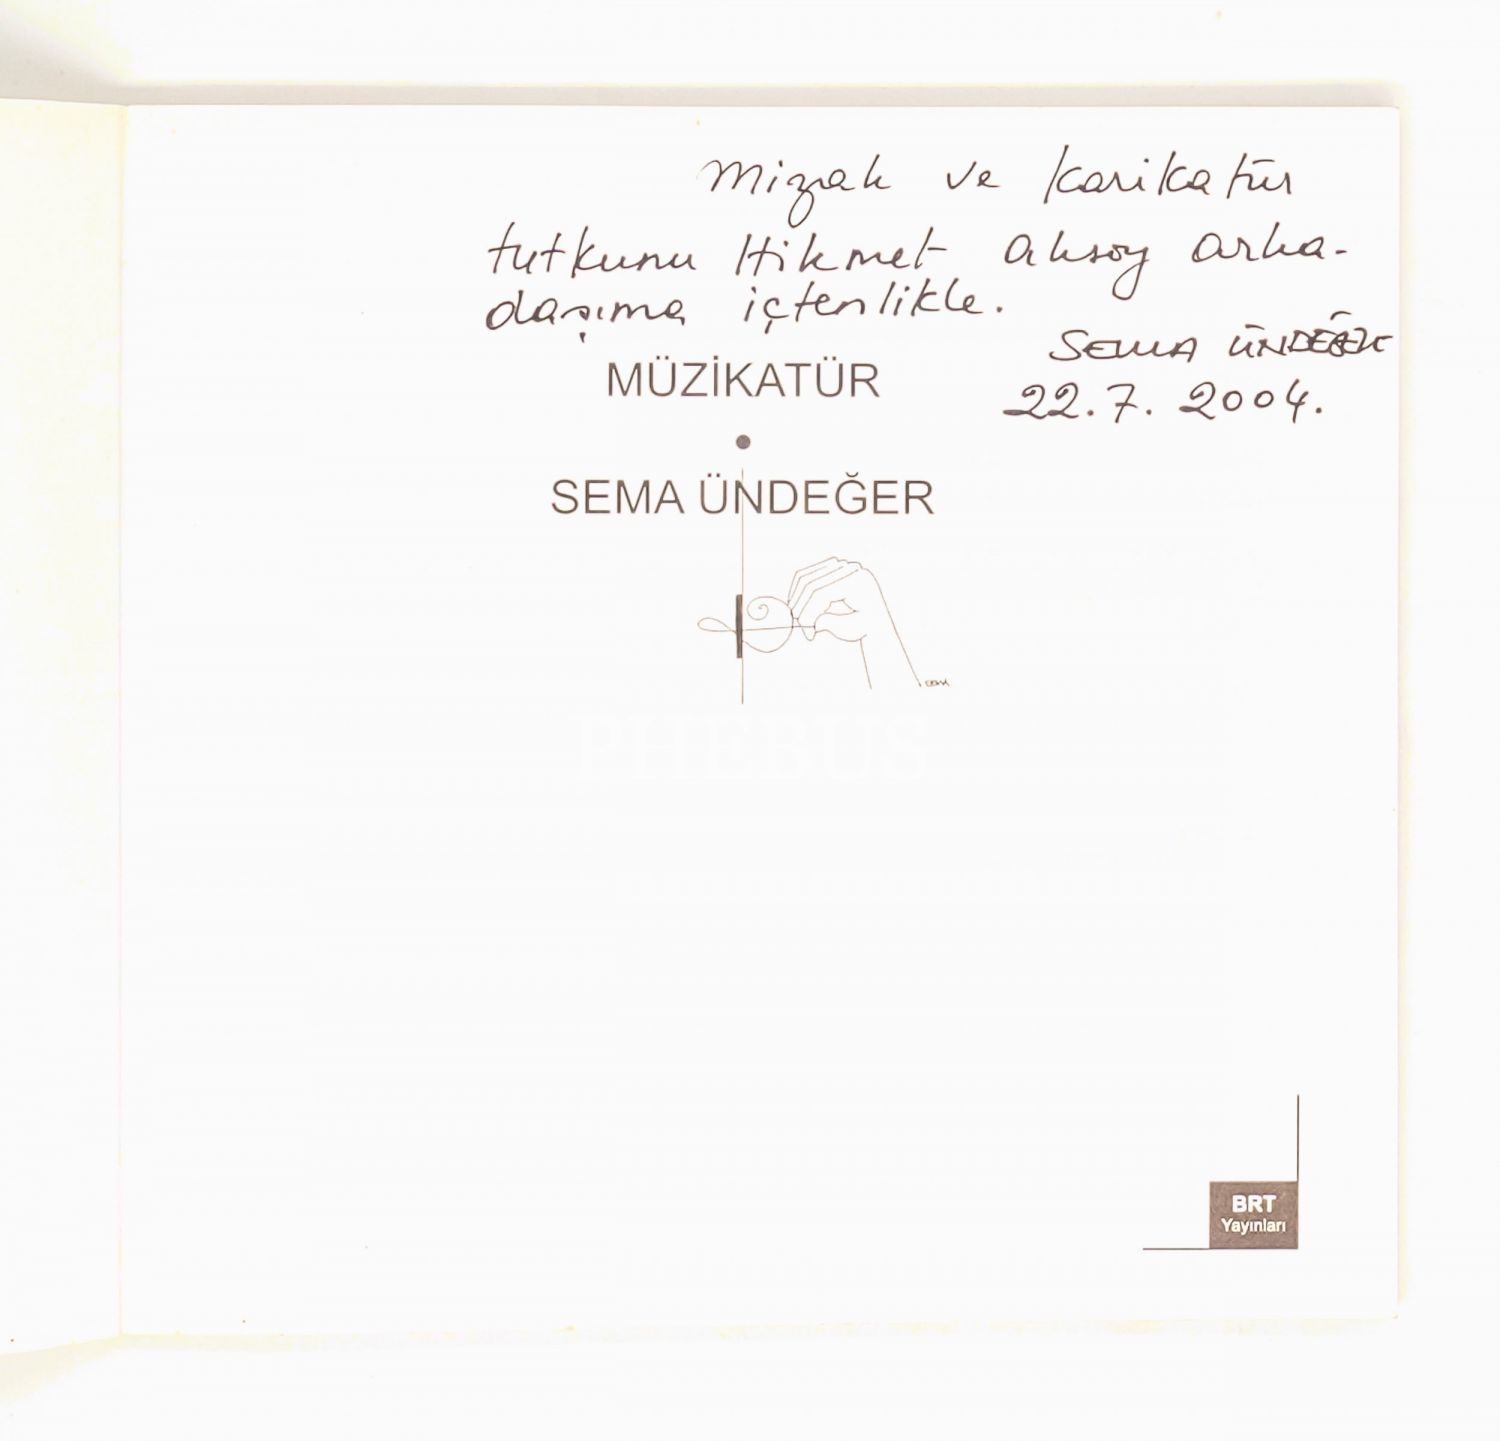 Mizah ve Karikatür
tutkunu Hikmet Aksoy arka-
daşıma içtenlikle.
SEMA ÜNDEĞER
22.7.2004.
MÜZİKATÜR
•
SEMA ÜNDEĞER
PHEBUS
BRT
Yayınları